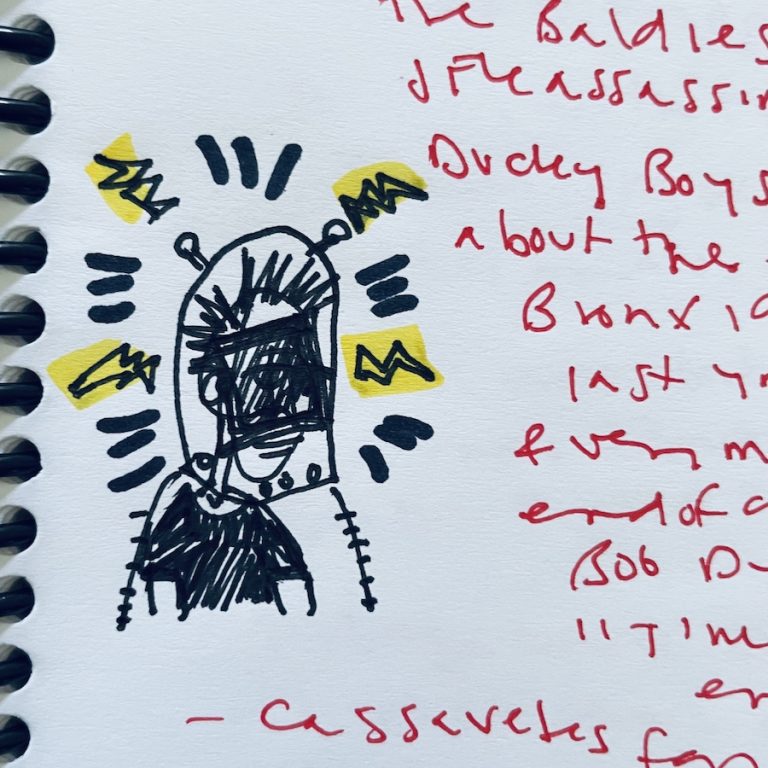 The Baldies
JFK assassin
Ducky Boys
about the
Bronx 19
last
& very m
end of a
Bob Dy
"Time
en
- Cassavetes fan